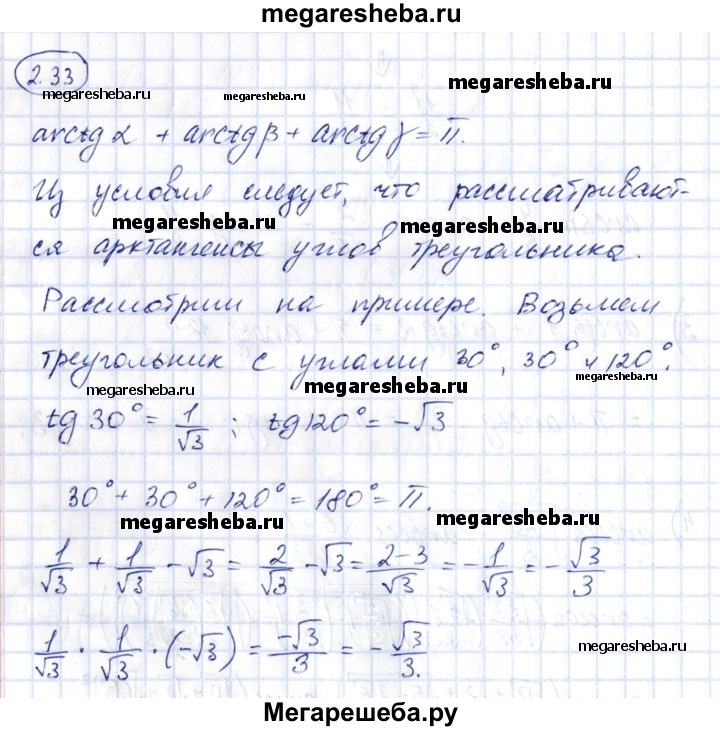 megaresheba.ru
2.33
megaresheba.ru
megaresheba.ru
megaresheba.ru
arctg α + arctg β + arctg γ = π.
Из условия следует, что рассматривают-
megaresheba.ru
megaresheba.ru
ся арктангенсы углов треугольника.
Рассмотрим на примере. Возьмем
треугольник с углами 30°, 30° и 120°.
megaresheba.ru
megaresheba.ru
megaresheba.ru
tg 30° = 1/√3 ; tg 120° = -√3
30° + 30° + 120° = 180° = π.
megaresheba.ru
megaresheba.ru
1/√3 + 1/√3 - √3 = 2/√3 - √3 = (2-3)/√3 = - 1/√3 = - √3/3
1/√3 · 1/√3 · (-√3) = -√3/3 = - √3/3.
megaresheba.ru
Мегарешеба.ру